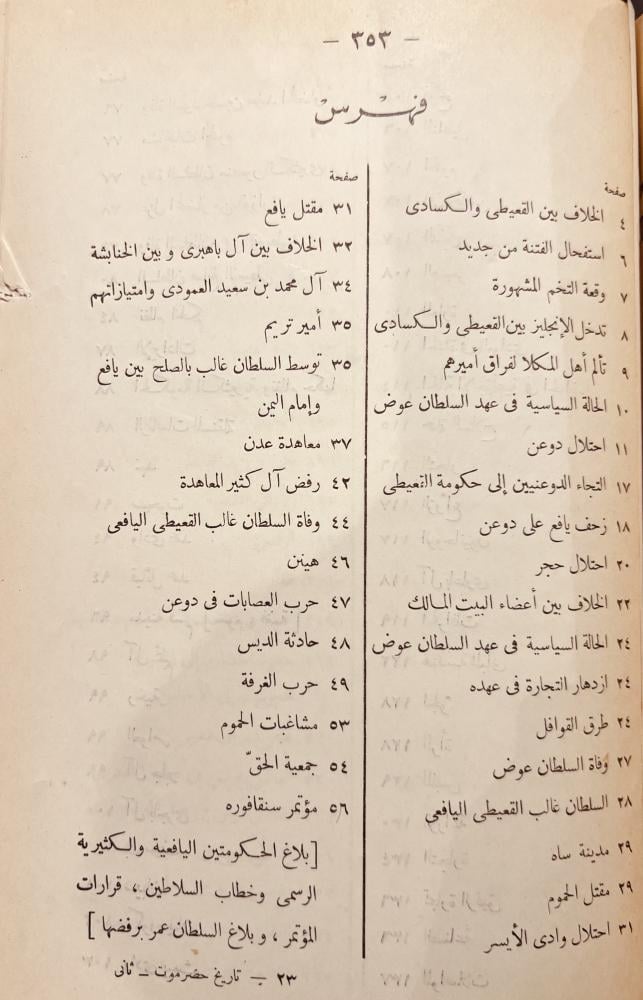 — ٣٥٣ —
فهرس
صفحة
٤ الخلاف بين القعيطى والكسادى
٦ استفحال الفتنة من جديد
٧ وقعة التخم المشهورة
٨ تدخل الإنجليز بين القعيطى والكسادى
٩ تألم أهل المكلا لفراق أميرهم
١٠ الحالة السياسية فى عهد السلطان عوض
١١ احتلال دوعن
١٧ التجاء الدوعنيين إلى حكومة القعيطى
١٨ زحف يافع على دوعن
٢٠ احتلال حجر
٢٢ الخلاف بين أعضاء البيت المالك
٢٤ الحالة السياسية فى عهد السلطان عوض
٢٤ ازدهار التجارة فى عهده
٢٤ طرق القوافل
٢٧ وفاة السلطان عوض
٢٨ السلطان غالب القعيطى اليافعى
٢٩ مدينة ساه
٢٩ مقتل الحموم
٣١ احتلال وادى الأيسر
صفحة
٣١ مقتل يافع
٣٢ الخلاف بين آل باهبرى و بين الخنابشة
٣٤ آل محمد بن سعيد العمودى وامتيازاتهم
٣٥ أمير تريم
٣٥ توسط السلطان غالب بالصلح بين يافع
وإمام اليمن
٣٧ معاهدة عدن
٤٢ رفض آل كثير المعاهدة
٤٤ وفاة السلطان غالب القعيطى اليافعى
٤٦ هينن
٤٧ حرب العصابات فى دوعن
٤٨ حادثة الديس
٤٩ حرب الغرفة
٥٣ مشاغبات الحموم
٥٤ جمعية الحقّ
٥٦ مؤتمر سنقافوره
[بلاغ الحكومتين اليافعية والكثيرية
الرسمى وخطاب السلاطين ، قرارات
المؤتمر ، و بلاغ السلطان عمر برفضها]
٢٣ — تاريخ حضرموت — ثانى